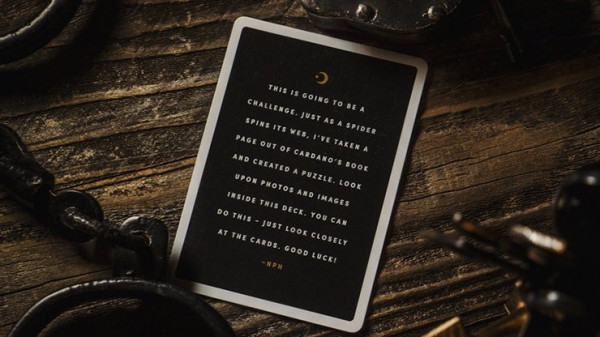 THIS IS GOING TO BE A
CHALLENGE. JUST AS A SPIDER
SPINS ITS WEB, I'VE TAKEN A
PAGE OUT OF CARDANO'S BOOK
AND CREATED A PUZZLE. LOOK
UPON PHOTOS AND IMAGES
INSIDE THIS DECK. YOU CAN
DO THIS – JUST LOOK CLOSELY
AT THE CARDS. GOOD LUCK!
–NPH